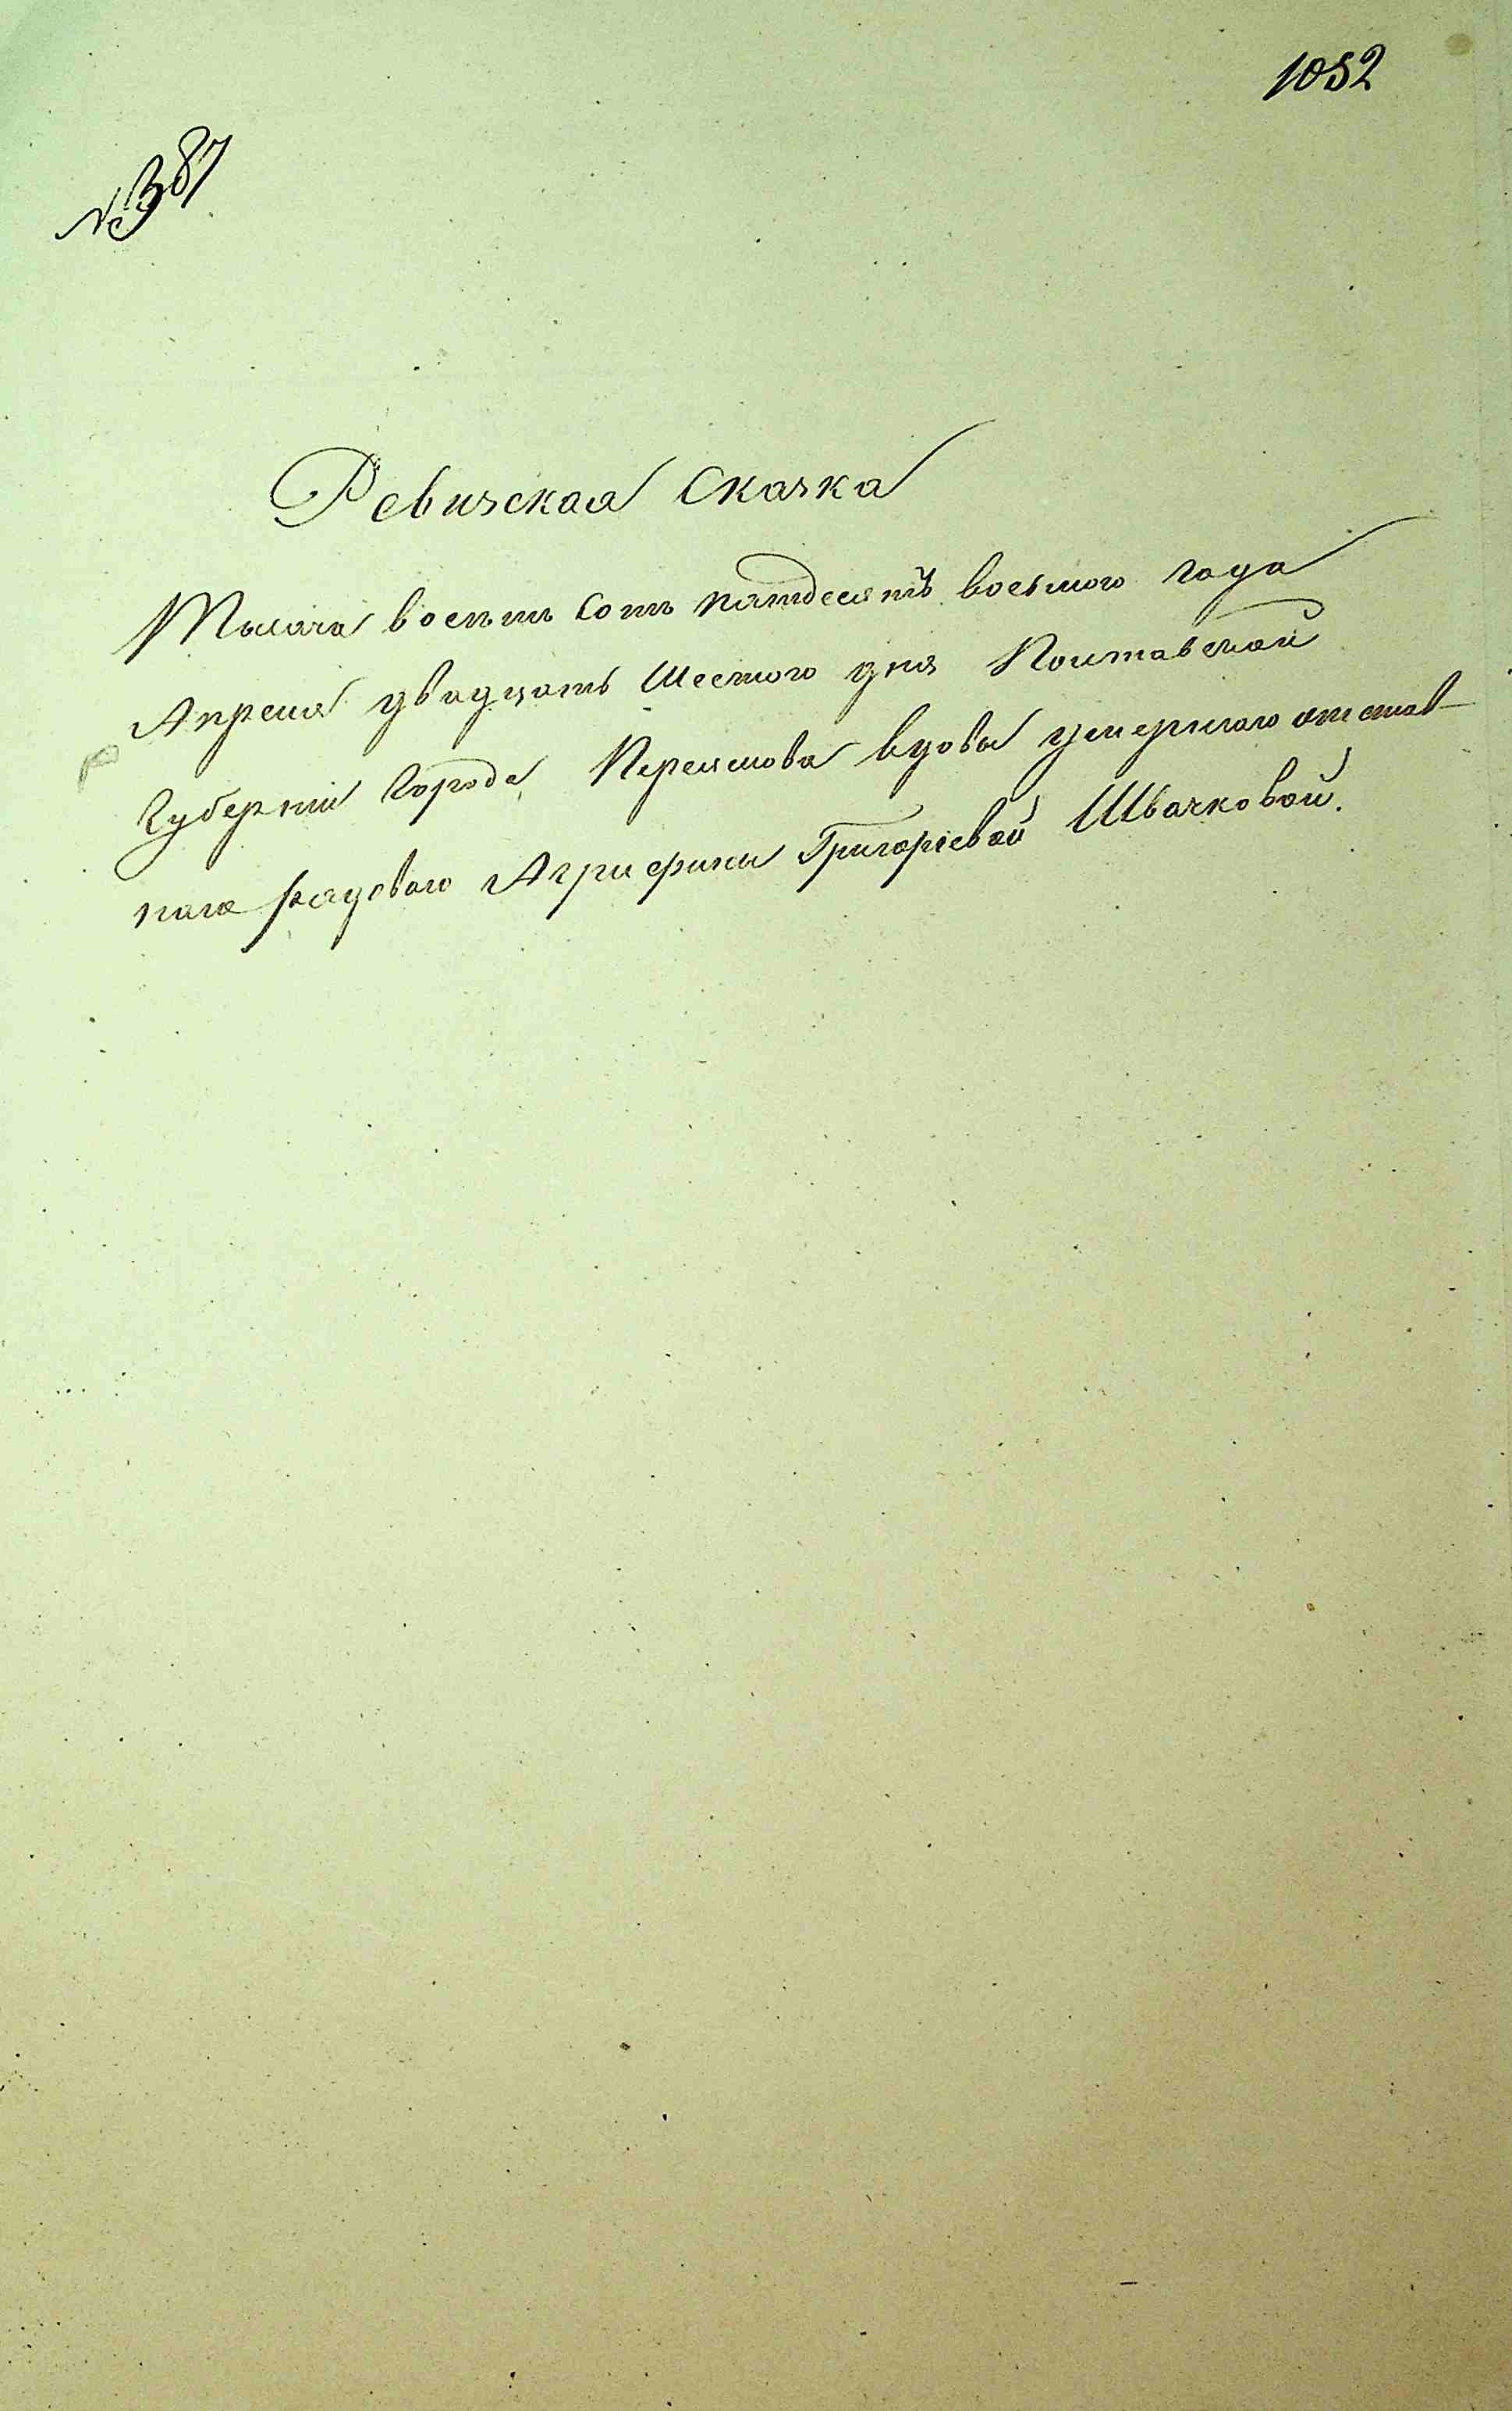 1052
№387
Ревизская Сказка
Тысяча восемь сотъ пятдесятъ восьмого года
Апреля двадцать Шестого дня Полтавской
Губерніи Города Переяслова вдовы умершаго отстав-
ного рядового Агрифины Григоріевой Швачковой.